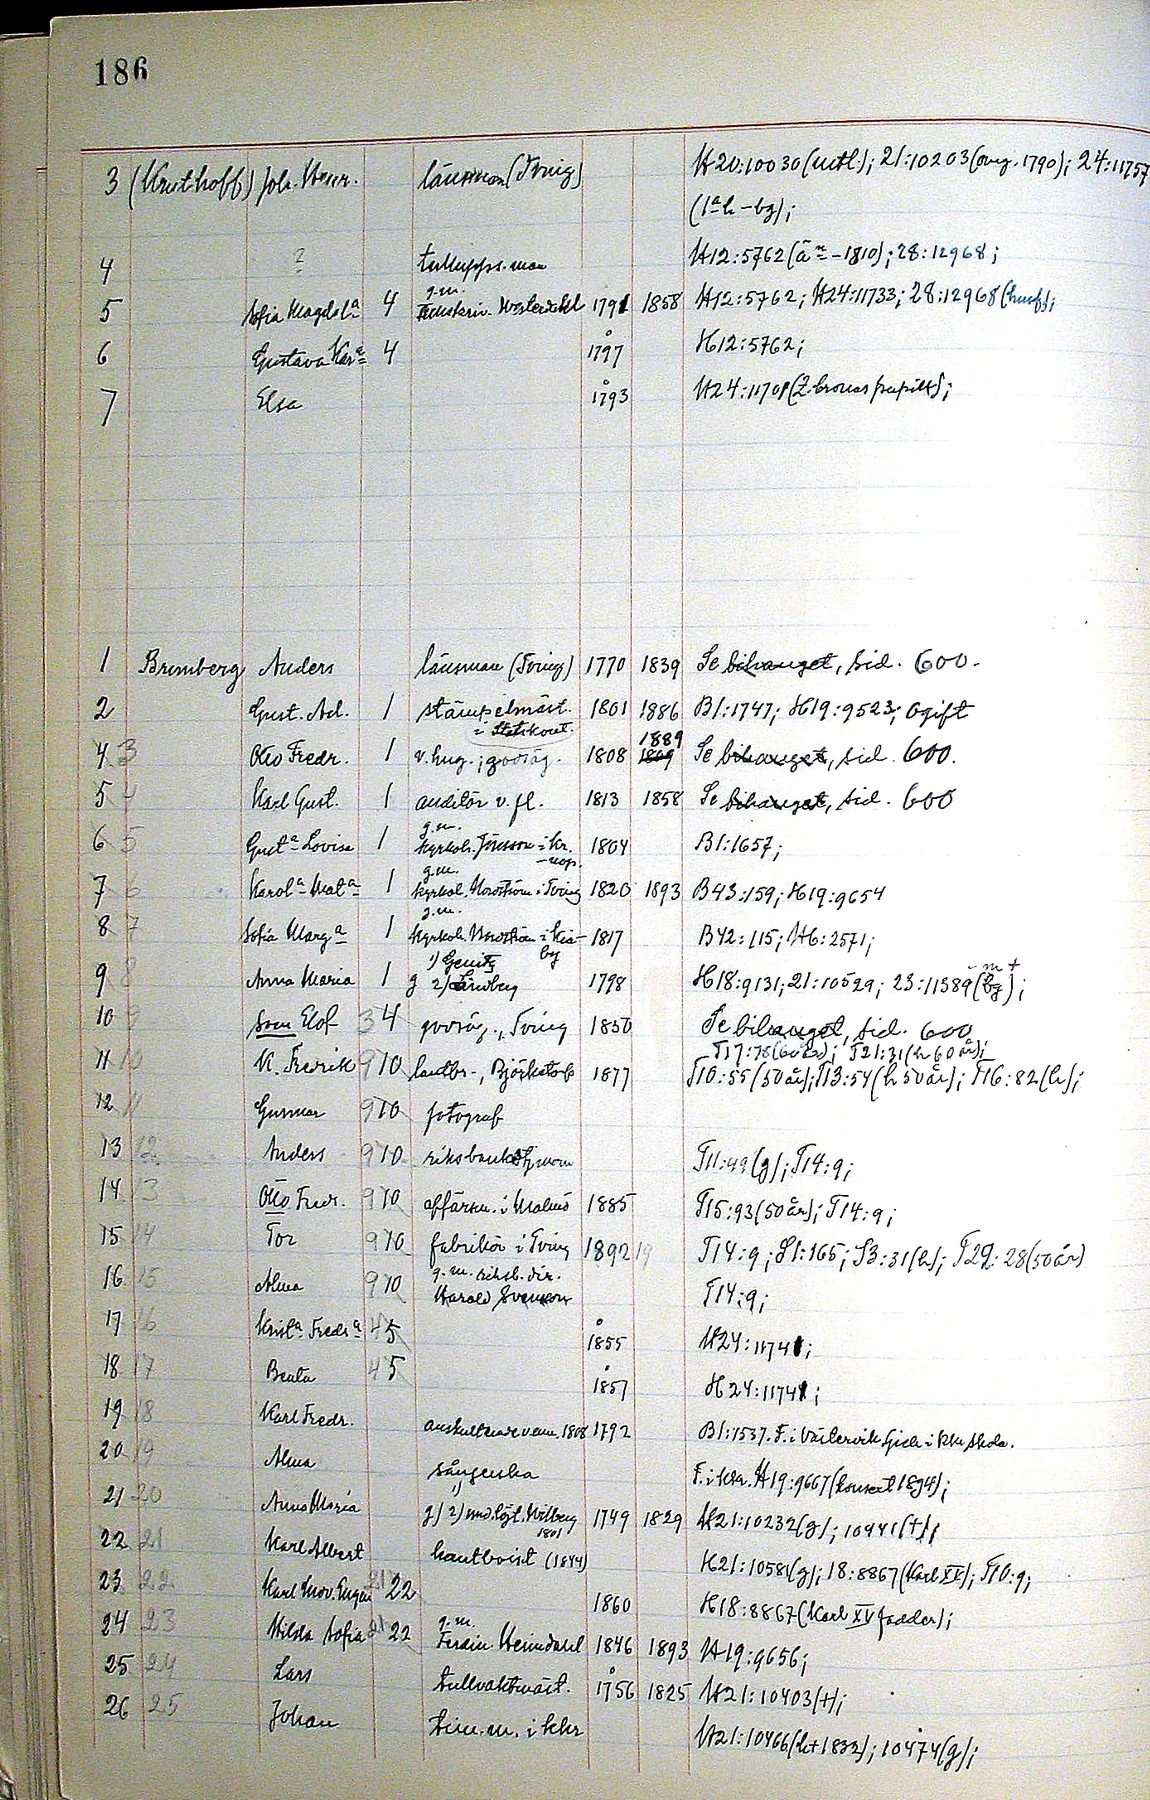 186
3 (Kruthoff) Joh. Henr. länsman (Tving) H20:10030 (utl.); 21:10203 (avg. 1790); 24:11757
(1a h-bg);
4 ? tullupps.man H12:5762 (än - 1810); 28:12968;
g.m.
5 Sofia Magdala 4 tullskriv. Westerdahl 1791 1858 H12:5762; H24:11733; 28:12968 (husf);
6 Gustava Kara 4 1797 H12:5762;
7 Elsa 1793 H24:11701
1 Brunberg Anders länsman (Tving) 1770 1839 Se bihanget, sid. 600.
2 Gust. Ad. 1 stämpelmäst. 1801 1886 B1:1747; H19:9523; ogift
= Statskont. 1889
4 3 Otto Fredr. 1 v.hug.; godsäg. 1808 1809 Se bihanget, sid. 600.
5 4 Karl Gust. 1 auditör v. fl. 1813 1858 Se bihanget, sid. 600
g.m.
6 5 Gusta Lovisa 1 kyrkoh. Jönsson i Kr. 1804 B1:1657;
-nop.
g.m.
7 6 Karola Mata 1 kyrkoh. Nordström i Tving 1820 1893 B43:159; H19:9654
g.m.
8 7 Sofia Marga 1 kyrkoh. Nordström i Kia- 1817 B42:115; H6:2571;
by
9 8 Anna Maria 1 g 2) Lindberg 1798 H18:9131; 21:10529; 23:11389 (bg);
10 9 Sven Elof 3 4 godsäg., Tving 1850 Se bihanget, sid. 600
T17:78 (60 år); T21:31 (h 60 år);
11 10 K. Fredrik 9 10 lantbr., Björketorp 1877 T10:55 (50 år); T13:54 (h 50 år); T16:82 (h);
12 11 Gunnar 9 10 fotograf
13 12 Anders 9 10 riksbankstjman T11:49 (g); T14:9;
14 13 Otto Fredr. 9 10 affärsm. i Malmö 1885 T15:93 (50 år); T14:9;
15 14 Tor 9 10 fabrikör i Tving 1892 19 T14:9; S1:165; S3:31 (h); T29:28 (50 år)
g.m. riksb.dir.
16 15 Alma 9 10 Harald Svenson T14:9;
17 16 Krista Fredra 4 5 1855 H24:11741;
18 17 Beata 4 5 1857 H24:11741;
19 18 Karl Fredr. auskultant 1808 1792 B1:1537. F. i Västervik. Gick i Kkr skola.
20 19 Alma sångerska F. i kkr. H19:9667 (konsert 1894);
1)
21 20 Anna Maria g) 2) und.löjt. Wilberg 1749 1829 H21:10232 (g); 10441 (+);
1801
22 21 Karl Albert hautboist (1844) H21:10581 (g); 18:8867 (Karl XV); T10:9;
23 22 Karl Mov. Eugen 21 22 1860 H18:8867 (Karl XV fadder);
g.m.
24 23 Hilda Sofia 21 22 Ferdin. Heimdahl 1846 1893 H19:9656;
25 24 Lars tullvaktmäst. 1756 1825 H21:10403 (+);
26 25 Johan tim.m. i kkr H21:10466 (h+1832); 10474 (g);